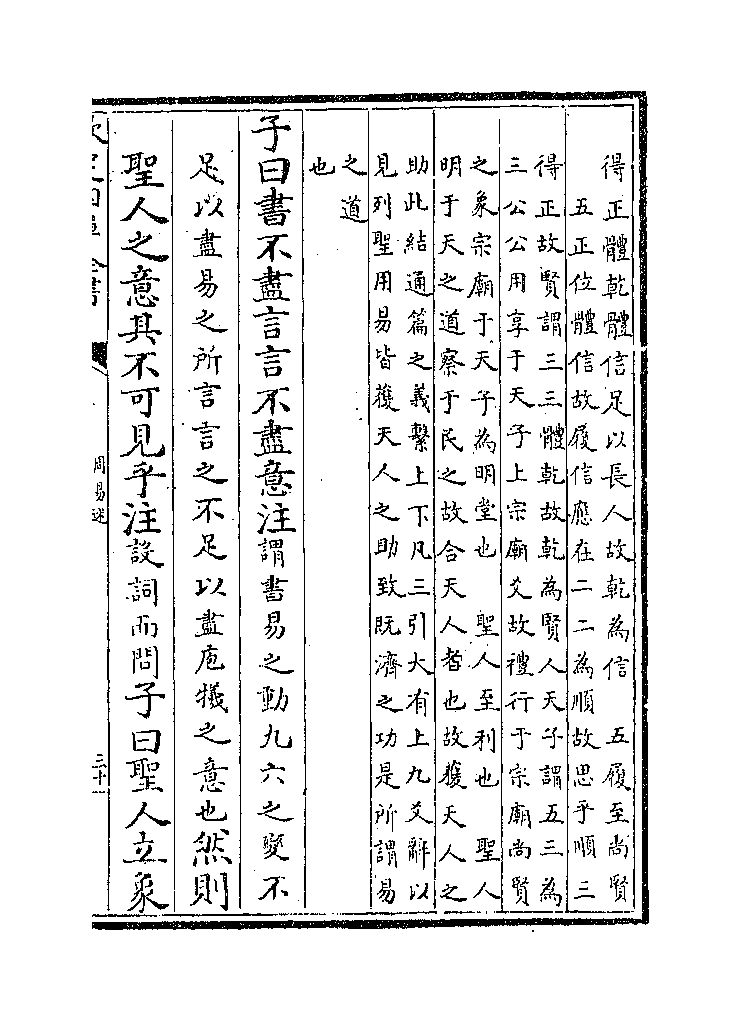 得正體乾體信足以長人故乾為信　五履至尚賢
五正位體信故履信應在二二為順故思乎順三
得正故賢謂三三體乾故乾為賢人天子謂五三為
三公公用享于天子上宗廟爻故禮行于宗廟尚賢
之象宗廟于天子為明堂也　聖人至利也　聖人
明于天之道察于民之故合天人者也故獲天人之
助此結通篇之義繫上下凡三引大有上九爻辭以
見列聖用易皆獲天人之助致既濟之功是所謂易
之道
也
子曰書不盡言言不盡意注謂書易之動九六之變不
足以盡易之所言言之不足以盡庖犧之意也然則
聖人之意其不可見乎注設詞而問子曰聖人立象
周易述
三十一